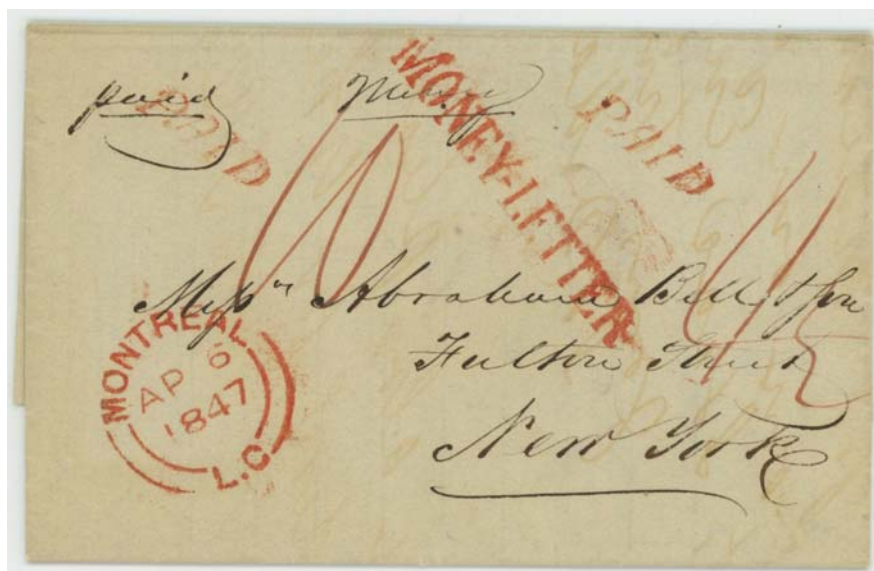 paid Money
PAID
MONEY-LETTER
PAID
Messrs Abraham Bell & Son
Fulton Street
New York
MONTREAL
AP 6
1847
L.C